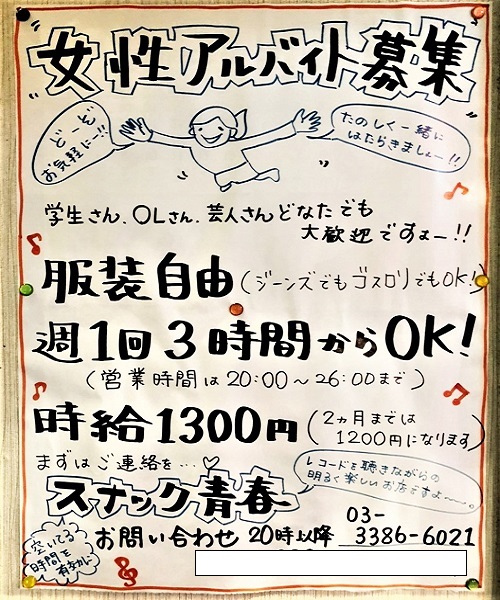 女性アルバイト募集
どーぞ
お気軽にー!!
たのしく一緒に
はたらきましょー!!
学生さん、OLさん、芸人さんどなたでも
大歓迎ですょー!!
服装自由(ジーンズでもゴスロリでもOK!)
週1回3時間からOK!
(営業時間は20:00〜26:00まで)
時給1300円(2ヵ月までは
1200円になります)
まずはご連絡を…♡
スナック青春
レコードを聴きながらの
明るく楽しいお店ですょ〜。
空いてる
時間を
有効に
お問い合わせ 20時以降 03-
3386-6021